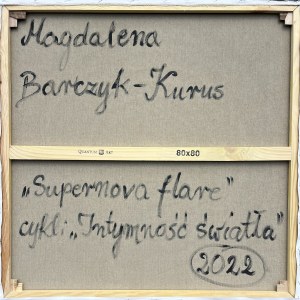 Magdalena
Barczyk-Kurus
80x80
„Supernova flare"
cykl: „Intymność światła"
2022